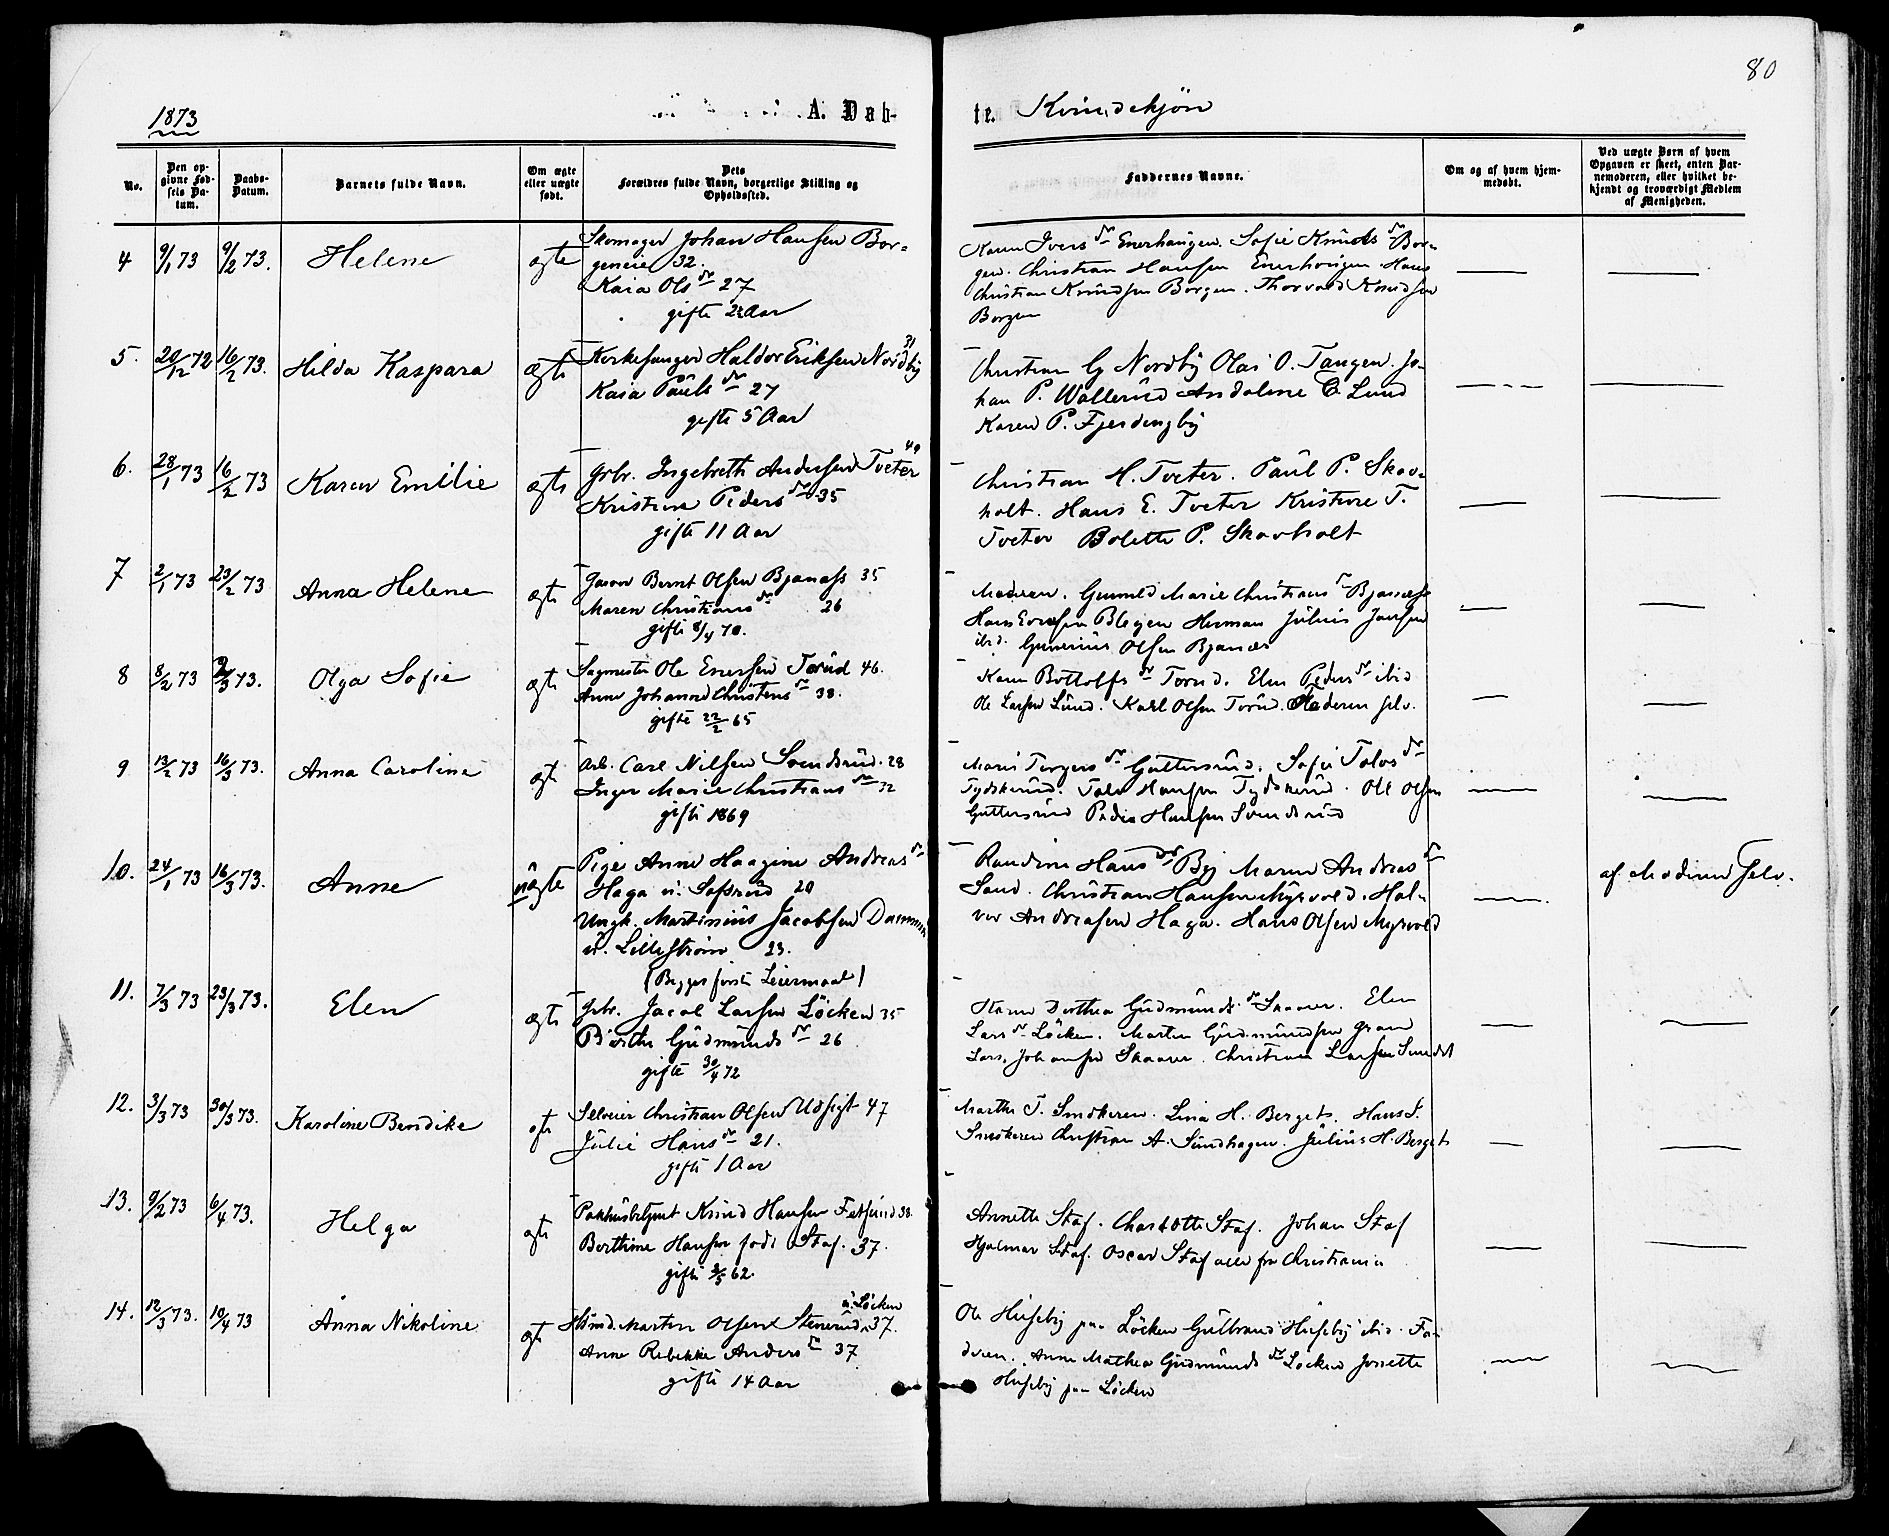 80
1873
A. Døb-
te. Kvindekjøn
No.
Den op-
givne Fød-
sels Da-
tum.
Daabs-
Datum.
Barnets fulde Navn.
Om ægte
eller uægte
født.
Dets
Forældres fulde Navn, borgerlige Stilling og
Opholdssted.
Faddernes Navne.
Om og af hvem hjem-
medøbt.
Ved uægte Børn af hvem
Opgaven er skeet, enten Bar-
nemoderen, eller hvilket be-
kjendt og troværdigt Medlem
af Menigheden.
4 9/1 73 9/2 73. Helene ægte
Skomager Johan Hansen Bor-
geneie 32.
Kaia Ols dr 27
gifte 2 Aar
Karen Ivers dr Enerhaugen. Sofie Knuds dr Bor-
gen. Christian Hansen Enerhaugen. Hans
Christian Knudsen Borgen. Thorvald Knudsen
Borgen
5. 20/12 72 16/2 73. Hilda Kaspara ægte
Kirkesanger Haldor Eriksen Nordby 31
Kaia Pauls dr 27
gifte 5 Aar
Christian G Nordby Olai O. Tangen. Jo-
han P. Wallerud Andoline E Lund
Karen P. Fjerdingby
6. 28/1 73 16/2 73 Karen Emilie ægte
Grbr. Ingebreth Andersen Tveter 49
Kristine Peders dr 35
gifte 11 Aar
Christian H. Tveter. Paul P. Skov-
holt. Hans E. Tveter Kristine T.
Tveter Bolette P. Skovholt
7 2/1 73 23/2 73 Anna Helene ægte
Gaarbr Bernt Olsen Bjanæss 35
Maren Christians dr 26
gifte 8/4 70.
Moderen. Gunnild Marie Christians dr Bjanæss
Hans Evensen Blegen Herman Julius Jansen
ibd. Gunerius Olsen Bjanæs
8 8/2 73 2/3 73. Olga Sofie ægte
Sagmester Ole Enersen Torud 46.
Anne Johanne Christens dr 38.
gifte 22/2 65
Karen Bottolfs dr Torud. Elen Peders dr ibid
Ole Larsen Lund. Karl Olsen Torud. Faderen selv.
9 13/2 73 16/3 73. Anna Caroline ægte
Arb. Carl Nilsen Svendsrud. 28
Inger Marie Christians dr 32
gifte 1869
Maria Torgers dr Guttersrud. Sofie Tolvs dr
Tydskerud. Tolv Hansen Tydskerud. Ole Olsen
Guttersrud Peder Hansen Svendsrud
10. 24/1 73 16/3 73. Anne uægte
Pige Anne Haagine Andreas dr
Haga u. Sofsrud 20
Ungk. Martinius Jacobsen
u. Lillestrøm 23.
(Begges første Leiermaal)
Randine Hans dr By Maren Andreas dr
Sand. Christian Hansen Myrvold. Hal-
vor Andreasen Haga. Hans Olsen Myrvold
af Moderen selv.
11. 7/3 73 23/3 73. Elen ægte
Grbr. Jacob Larsen Løcken 35
Birthe Gudmunds dr 26
gifte 30/4 72
Karen Dorthea Gudmunds dr Skaarer. Elen
Lars dr Løcken. Martin Gudmundsen Gran
Lars Johansen Skaarer. Christian Larsen
12. 3/3 73 30/3 73. Karoline Bendike ægte
Selveier Christian Olsen Udsigt 47
Julie Hans dr 21.
gifte 1 Aar
Marthe T. Snekeren. Lina H. Berget. Hans T.
Snekeren Christian A. Sundhagen. Julius H. Berget
13. 9/2 73 6/4 73. Helga ægte
Pakhusbetjent Knud Hansen Fetsund 38.
Berthine Hansen født Staf. 37.
gifte 3/5 62.
Annette Staf. Charlotte Staf. Johan Staf
Hjalmar Staf. Oscar Staf alle fra Christiania
14. 12/3 73. 10/4 73 Anna Nikoline ægte
Husmd. Martin Olsen Stenerud u. Løcken 37.
Anne Rebekke Anders dr 37
gifte 14 Aar
Ole Huseby paa Løcken Gulbrand Huseby ibid. Fa-
deren. Anne Mathea Gudmunds dr Løcken Josette
Huseby paa Løcken